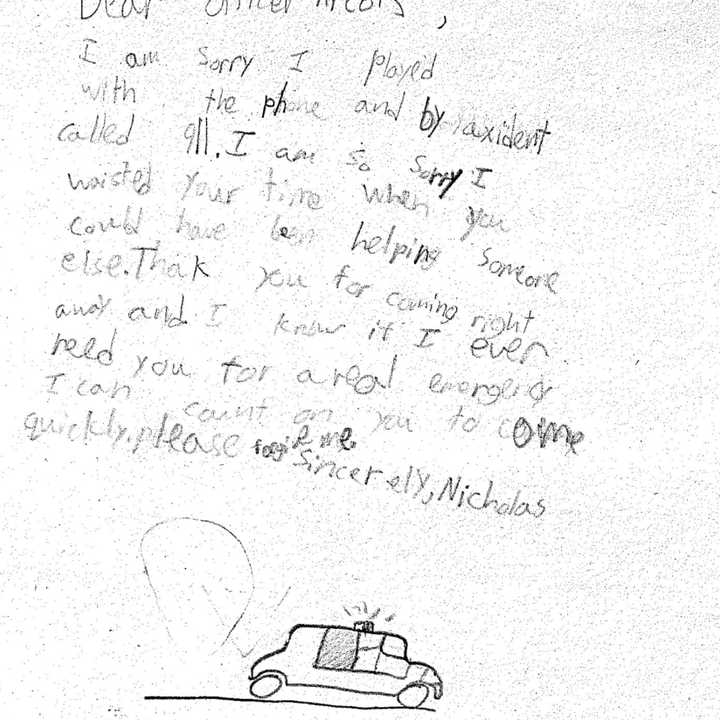 Dear Officer
I am sorry I played
with the phone and by axident
called 911. I am so sorry I
waisted your time when you
could have been helping someone
else. Thak you for coming right
away and I know if I ever
need you for a real emergency
I can count on you to come
quickly. please forgive me.
Sincerely, Nicholas